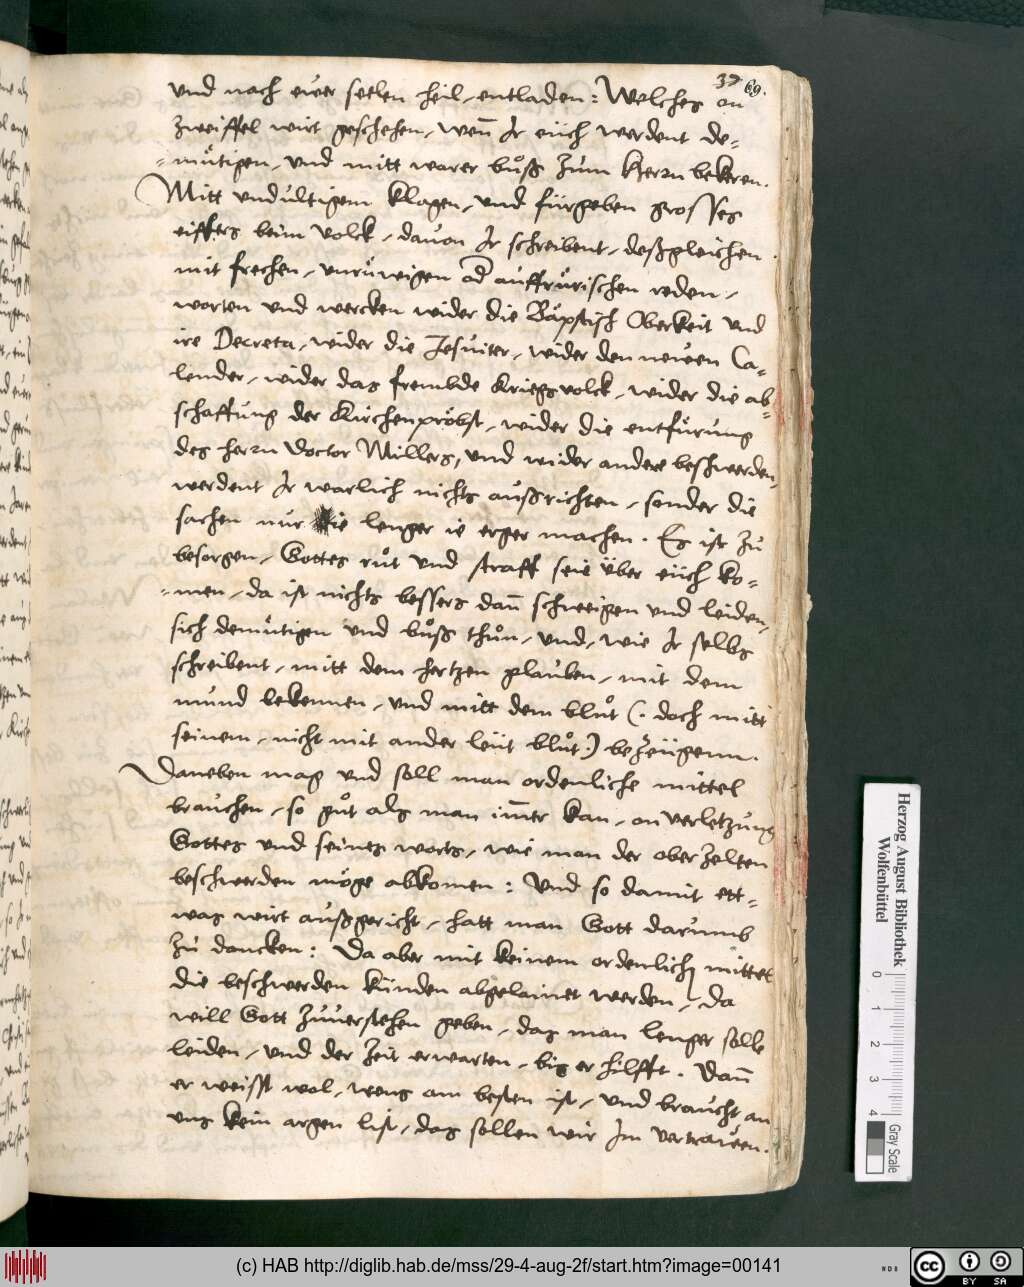 37 69.
vnd nach ewer seelen heil, entladen: Welches on
zweiffel wirt geschehen, weñ Ir eüch werdent de=
=müttigen, vnd mitt warer bůß zum Herrn bekeren.
Mitt vndultigem klagen, vnd fürgeben grosses
eiffers beim volck, dauon Ir schreibent, deßgleichen
mit frechen, vnrüwigen od auffrürischen reden,
worten vnd wercken wider die Bäpstisch Oberkeit vnd
ire Decreta, wider die Jesuiter, wider den neuen Ca=
lender, wider das frembde kriegsvolck, wider die ab=
schaffung der Kirchenpröbst, wider die entfürung
des herrn Doctor Millers, vnd wider andere beschwerden,
werdent Ir warlich nichts außrichten, sonder die
sachen nur ie lenger ie erger machen. Es ist zu
besorgen, Gottes růt vnd straff seie über eüch ko=
=men, da ist nichts bessers dañ schweigen vnd leiden,
sich demütigen vnd bůß thůn, vnd, wie Ir selbs
schreibent, mitt dem hertzen glauben, mit dem
mund bekennen, vnd mitt dem blůt (. doch mitt
seinem, nicht mit ander leüt blůt.) bezeügenn.
Daneben mag vnd soll man ordenliche mittel
brauchen, so gůt als man im̃er kan, on verletzung
Gottes vnd seines worts, wie man der oberzelten
beschwerden möge abkomen: Vnd so damit ett=
was wirt außgericht, hatt man Gott darumb
zu dancken: Da aber mit keinem ordenlich mittel
die beschwerden künden abgelainet werden, da
will Gott zuuerstehen geben, das man lenger solle
leiden, vnd der zeit erwarten, bis er hilfft. Dañ
er weisst wol, wens am besten ist, vnd braucht an
vns kein argen list, das sollen wir Im vertrauen.
Herzog August Bibliothek
Wolfenbüttel
0 1 2 3 4
Gray Scale
(c) HAB http://diglib.hab.de/mss/29-4-aug-2f/start.htm?image=00141
WDB
cc BY SA